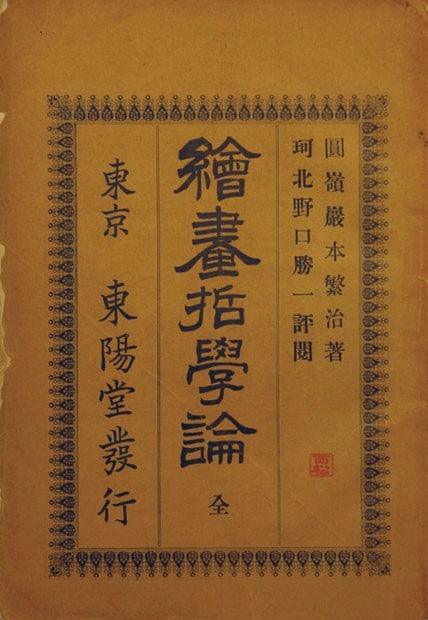 圓嶺巖本繁治著
珂北野口勝一評閲
繪畫哲學論 全
東京 東陽堂發行